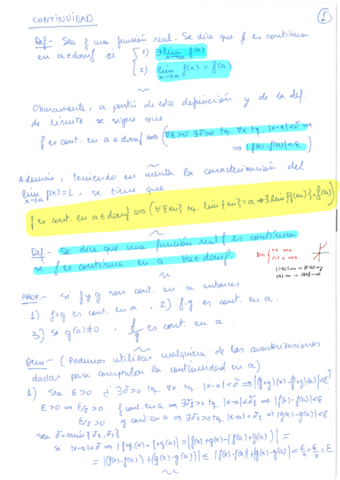 CONTINUIDAD
Def.- Sea f una función real. Se dice que f es continua
en a∈domf si { 1) ∃ lim x→a f(x)
2) lim x→a f(x) = f(a)
Obviamente, a partir de esta definición y de la def.
de límite se sigue que
f es cont. en a∈domf ⟺ (∀ε>0 ∃δ>0 tq. ∀x tq. |x-a|<δ ⟹
⟹ |f(x)-f(a)|<ε)
Además, teniendo en mente la caracterización del
lim x→a f(x)=L, se tiene que
f es cont. en a∈domf ⟺ (∀{xn} tq lim{xn}=a ⟹ ∃ lim{f(xn)}=f(a))
Def.- Se dice que una función real f es continua
si f es continua en a ∀a∈domf.
PROP.- Si f y g son cont. en a entonces
1) f+g es cont. en a , 2) f·g es cont. en a.
3) Si g(a)≠0, f/g es cont. en a.
Dem.- (Podemos utilizar cualquiera de las caracterizaciones
dadas para comprobar la continuidad en a)
1) Sea ε>0 ¿∃δ>0 tq. ∀x tq. |x-a|<δ ⟹ |(f+g)(x)-(f+g)(a)|<ε?
ε>0 ⟹ ε/2>0 f cont. en a ⟹ ∃δ1>0 tq |x-a|<δ1 ⟹ |f(x)-f(a)|<ε/2
ε/2>0 g cont. en a ⟹ ∃δ2>0 tq |x-a|<δ2 ⟹ |g(x)-g(a)|<ε/2
Sea δ=min{δ1,δ2}
si |x-a|<δ ⟹ |(f+g)(x)-(f+g)(a)|=|f(x)+g(x)-(f(a)+g(a))|=
=|(f(x)-f(a))+(g(x)-g(a))| ≤ |f(x)-f(a)|+|g(x)-g(a)|<ε/2+ε/2=ε